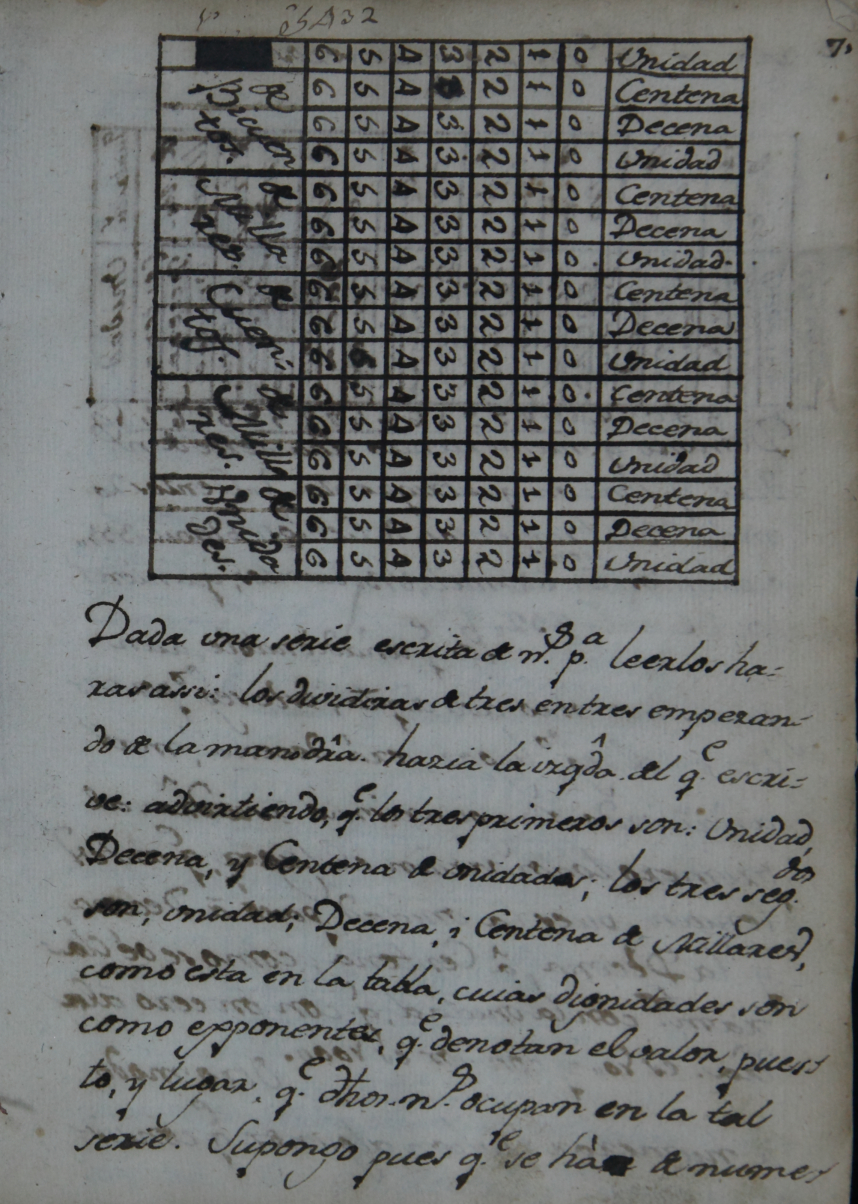 5432
7.
6 5 4 3 2 1 0 Unidad
6 5 4 2 1 0 Centena
6 5 4 3 2 1 0 Decena
6 5 4 3 2 1 0 Unidad
6 5 4 3 2 1 0 Centena
6 5 4 3 2 1 0 Decena
6 5 4 3 2 1 0 Unidad.
6 5 4 3 2 1 0 Centena
6 5 4 3 2 1 0 Decena
6 4 3 2 1 0 Unidad
6 5 4 3 2 1 0 Centena
6 5 4 3 2 1 0 Decena
6 5 4 3 2 1 0 Unidad
6 5 4 3 2 1 0 Centena
6 5 4 3 2 1 0 Decena
6 5 4 3 2 1 0 Unidad
de
xos.
de
de
de
nes.
de
Vnida
des.
Dada vna serie escrita de n.s p.a leerlos ha-
ras assi: los dividiras de tres en tres empezan-
do de la mano dr̂a. hazia la izqd̂a. del q.e escri-
ve: advirtiendo, q.e los tres primeros son: Unidad,
Decena, y Centena de vnidades; los tres seg.dos
son, vnidad; Decena, i Centena de Millares,
como esta en la tabla, cuias dignidades son
como exponentes, q.e denotan el valor, pues-
to, y lugar, q.e dhos. n.s ocupan en la tal
serie. Supongo pues q.e se hà de nume-